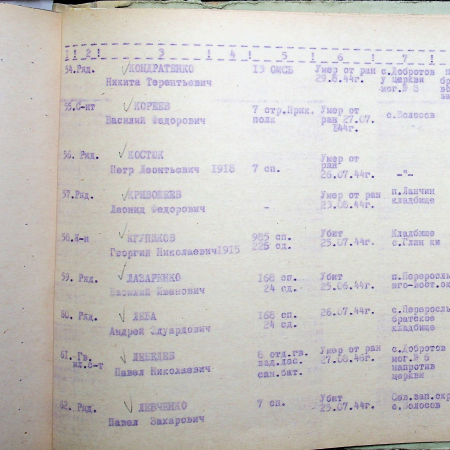 1 2 3 1 4 1 5 1 6 1 7 1
54.Ряд. КОНДРАТЕНКО 13 ОМСБ Умер от ран с.Добротов
Никита Терентьевич 29.8.44г. у церкви
мог.№ 6
55.С-нт КОРНЕВ 7 стр.Прик. Умер от с.Волосов
Василий Федорович полк ран 27.07.
44г.
56. Ряд. КОСТЮК Умер от
Петр Леонтьевич 1918 7 сп. ран
26.07.44г. -"-
57.Ряд. КРИВОШЕЕВ Умер от ран п.Ланчин
Леонид Федорович - 23.08.44г. кладбище
58. КРУПЯКОВ 985 сп. Убит Кладбище
Георгий Николаевич1915 226 сд. 25.07.44г. с.Глинки
59. Ряд. ЛАЗАРЕНКО 168 сп. Убит с.Перерос
Василий Иванович 24 сд. 25.06.44г. юго-вост.ок
60. Ряд. ЛЕВА 168 сп. 26.07.44г. с.Перерос
Андрей Эдуардович 24 сд. братское
кладбище
61. Гв. ЛЕБЕДЕВ 6 отд.гв. Умер от ран с.Добротов
мл.с-т Павел Николаевич 27.08.46г. мог.№ 6
сан.бат. напротив
церкви
62. Ряд. ЛЕВЧЕНКО 7 сп. Убит Сев.зап.
Павел Захарович 25.07.44г. с.Волосов